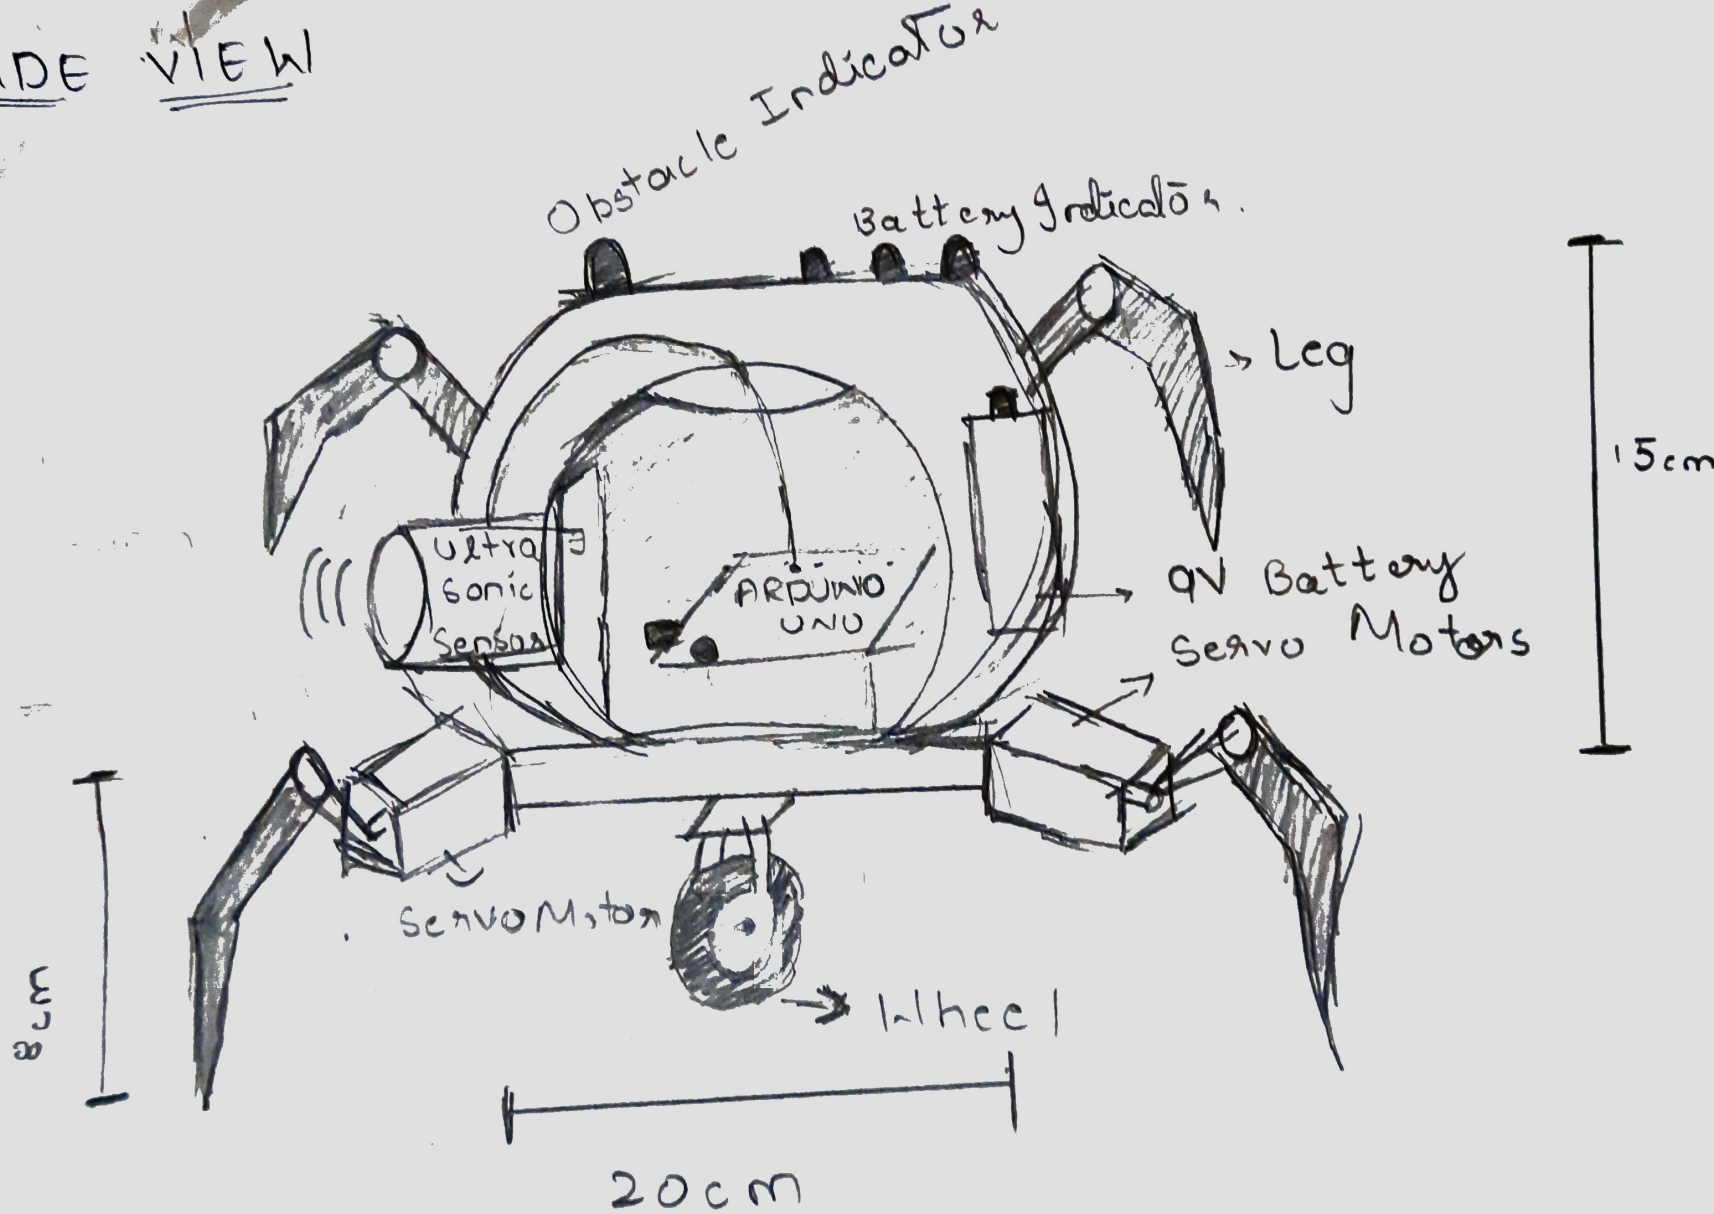 IDE VIEW
Obstacle Indicator
Battery Indicator.
Leg
15cm
Ultra
Sonic
Sensor
ARDUINO
UNO
9V Battery
Servo Motors
Servo Motor
8cm
Wheel
20cm